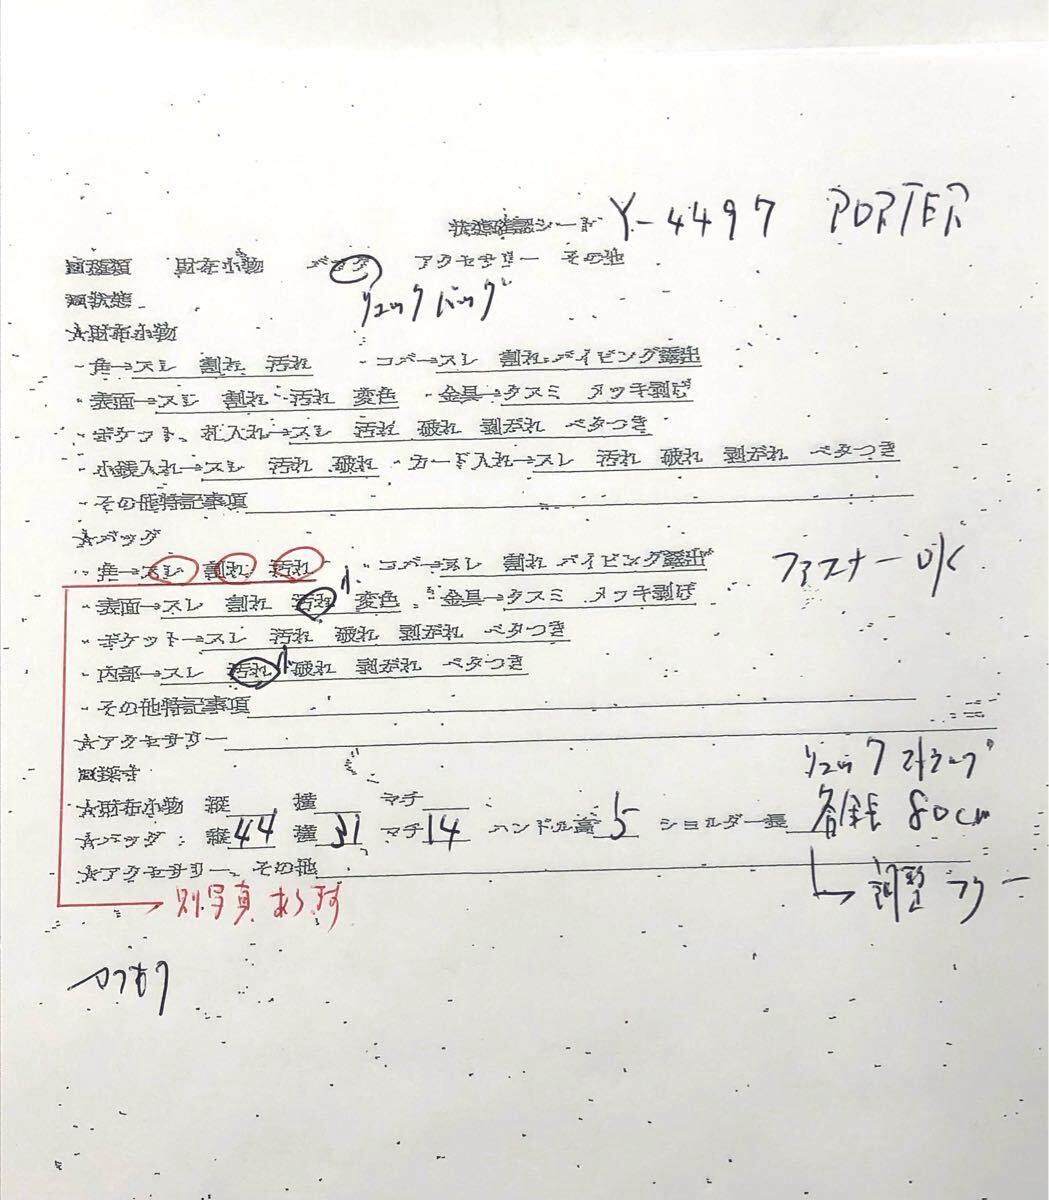 状態確認シート Y-4497 PORTER
□種類 財布小物 バッグ アクセサリー その他
リュックバッグ
□状態
☆財布小物
・角→スレ 割れ 汚れ ・コバ→スレ 割れ パイピング露出
・表面→スレ 割れ 汚れ 変色 ・金具→クスミ メッキ剥げ
・ポケット、札入れ→スレ 汚れ 破れ 剥がれ ベタつき
・小銭入れ→スレ 汚れ 破れ ・カード入れ→スレ 汚れ 破れ 剥がれ ベタつき
・その他特記事項
☆バッグ
・角→スレ 割れ 汚れ ・コバ→スレ 割れ パイピング露出 ファスナーOK
・表面→スレ 割れ 汚れ 小 変色 ・金具→クスミ メッキ剥げ
・ポケット→スレ 汚れ 破れ 剥がれ ベタつき
・内部→スレ 汚れ 小 破れ 剥がれ ベタつき
・その他特記事項
☆アクセサリー
□採寸 リュックストラップ
☆財布小物 縦 横 マチ
☆バッグ: 縦44 横31 マチ14 ハンドル高5 ショルダー長 80cm
☆アクセサリー、その他 調整
別写真あります